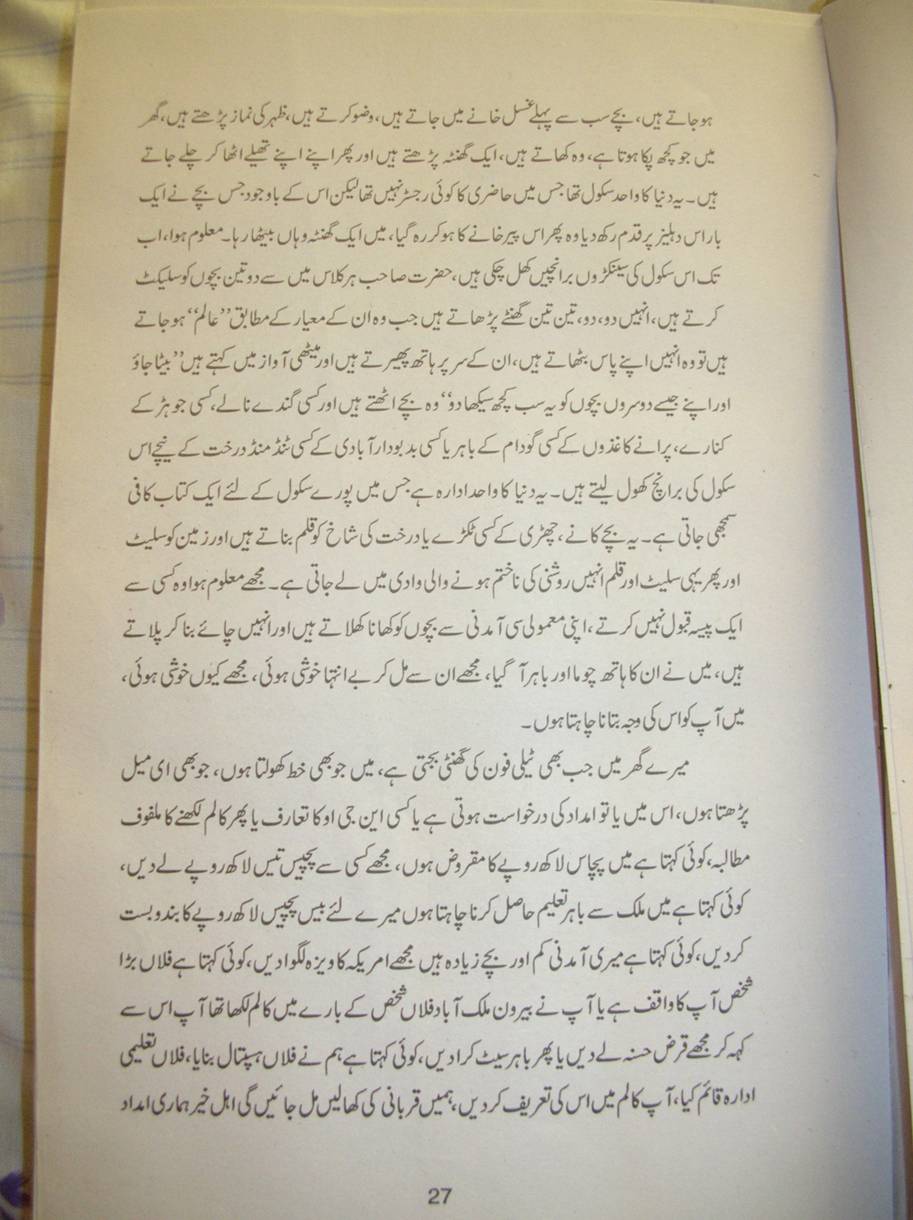 ہو جاتے ہیں، بچے سب سے پہلے غسل خانے میں جاتے ہیں، وضو کرتے ہیں، ظہر کی نماز پڑھتے ہیں، گھر
میں جو کچھ پکا ہوتا ہے، وہ کھاتے ہیں، ایک گھنٹہ پڑھتے ہیں اور پھر اپنے اپنے تھیلے اٹھا کر چلے جاتے
ہیں۔ یہ دنیا کا واحد سکول تھا جس میں حاضری کا کوئی رجسٹر نہیں تھا لیکن اس کے باوجود جس بچے نے ایک
بار اس دہلیز پر قدم رکھ دیا وہ پھر اس پیر خانے کا ہو کر رہ گیا، میں ایک گھنٹہ وہاں بیٹھا رہا۔ معلوم ہوا، اب
تک اس سکول کی سینکڑوں برانچیں کھل چکی ہیں، حضرت صاحب ہر کلاس میں سے دو تین بچوں کو سلیکٹ
کرتے ہیں، انہیں دو، دو، تین تین گھنٹے پڑھاتے ہیں جب وہ ان کے معیار کے مطابق ’’عالم‘‘ ہو جاتے
ہیں تو وہ انہیں اپنے پاس بٹھاتے ہیں، ان کے سر پر ہاتھ پھیرتے ہیں اور میٹھی آواز میں کہتے ہیں ’’بیٹا جاؤ
اور اپنے جیسے دوسروں بچوں کو یہ سب کچھ سیکھا دو‘‘ وہ بچے اٹھتے ہیں اور کسی گندے نالے، کسی جوہڑ کے
کنارے، پرانے کاغذوں کے کسی گودام کے باہر یا کسی بدبودار آبادی کے کسی ٹنڈ منڈ درخت کے نیچے اس
سکول کی برانچ کھول لیتے ہیں۔ یہ دنیا کا واحد ادارہ ہے جس میں پورے سکول کے لئے ایک کتاب کافی
سمجھی جاتی ہے۔ یہ بچے کانے، چھڑی کے کسی ٹکڑے یا درخت کی شاخ کو قلم بناتے ہیں اور زمین کو سلیٹ
اور پھر یہی سلیٹ اور قلم انہیں روشنی کی ناختم ہونے والی وادی میں لے جاتی ہے۔ مجھے معلوم ہوا وہ کسی سے
ایک پیسہ قبول نہیں کرتے، اپنی معمولی سی آمدنی سے بچوں کو کھانا کھلاتے ہیں اور انہیں چائے بنا کر پلاتے
ہیں، میں نے ان کا ہاتھ چوما اور باہر آ گیا، مجھے ان سے مل کر بے انتہا خوشی ہوئی، مجھے کیوں خوشی ہوئی،
میں آپ کو اس کی وجہ بتانا چاہتا ہوں۔
میرے گھر میں جب بھی ٹیلی فون کی گھنٹی بجتی ہے، میں جو بھی خط کھولتا ہوں، جو بھی ای میل
پڑھتا ہوں، اس میں یا تو امداد کی درخواست ہوتی ہے یا کسی این جی او کا تعارف یا پھر کالم لکھنے کا ملفوف
مطالبہ، کوئی کہتا ہے میں پچاس لاکھ روپے کا مقروض ہوں، مجھے کسی سے پچیس تیس لاکھ روپے لے دیں،
کوئی کہتا ہے میں ملک سے باہر تعلیم حاصل کرنا چاہتا ہوں میرے لئے بیس پچیس لاکھ روپے کا بندوبست
کر دیں، کوئی کہتا ہے میری آمدنی کم اور بچے زیادہ ہیں مجھے امریکہ کا ویزہ لگوا دیں، کوئی کہتا ہے فلاں بڑا
شخص آپ کا واقف ہے یا آپ نے بیرون ملک آباد فلاں شخص کے بارے میں کالم لکھا تھا آپ اس سے
کہہ کر مجھے قرض حسنہ لے دیں یا پھر باہر سیٹ کرا دیں، کوئی کہتا ہے ہم نے فلاں ہسپتال بنایا، فلاں تعلیمی
ادارہ قائم کیا، آپ کالم میں اس کی تعریف کر دیں، ہمیں قربانی کی کھالیں مل جائیں گی اہل خیر ہماری امداد
27